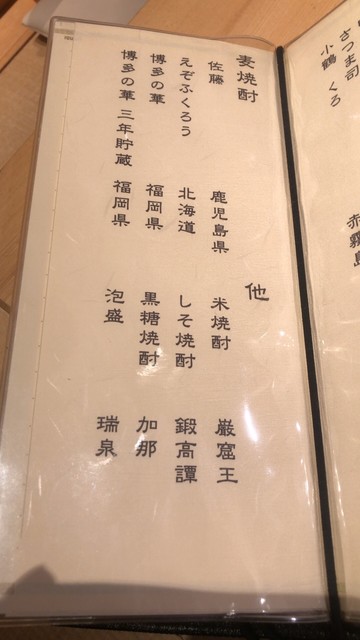 さつま司
小鶴 くろ
赤霧島
麦焼酎
佐藤 鹿児島県
えぞふくろう 北海道
博多の華 福岡県
博多の華 三年貯蔵 福岡県
他
米焼酎 巌窟王
しそ焼酎 鍛高譚
黒糖焼酎 加那
泡盛 瑞泉